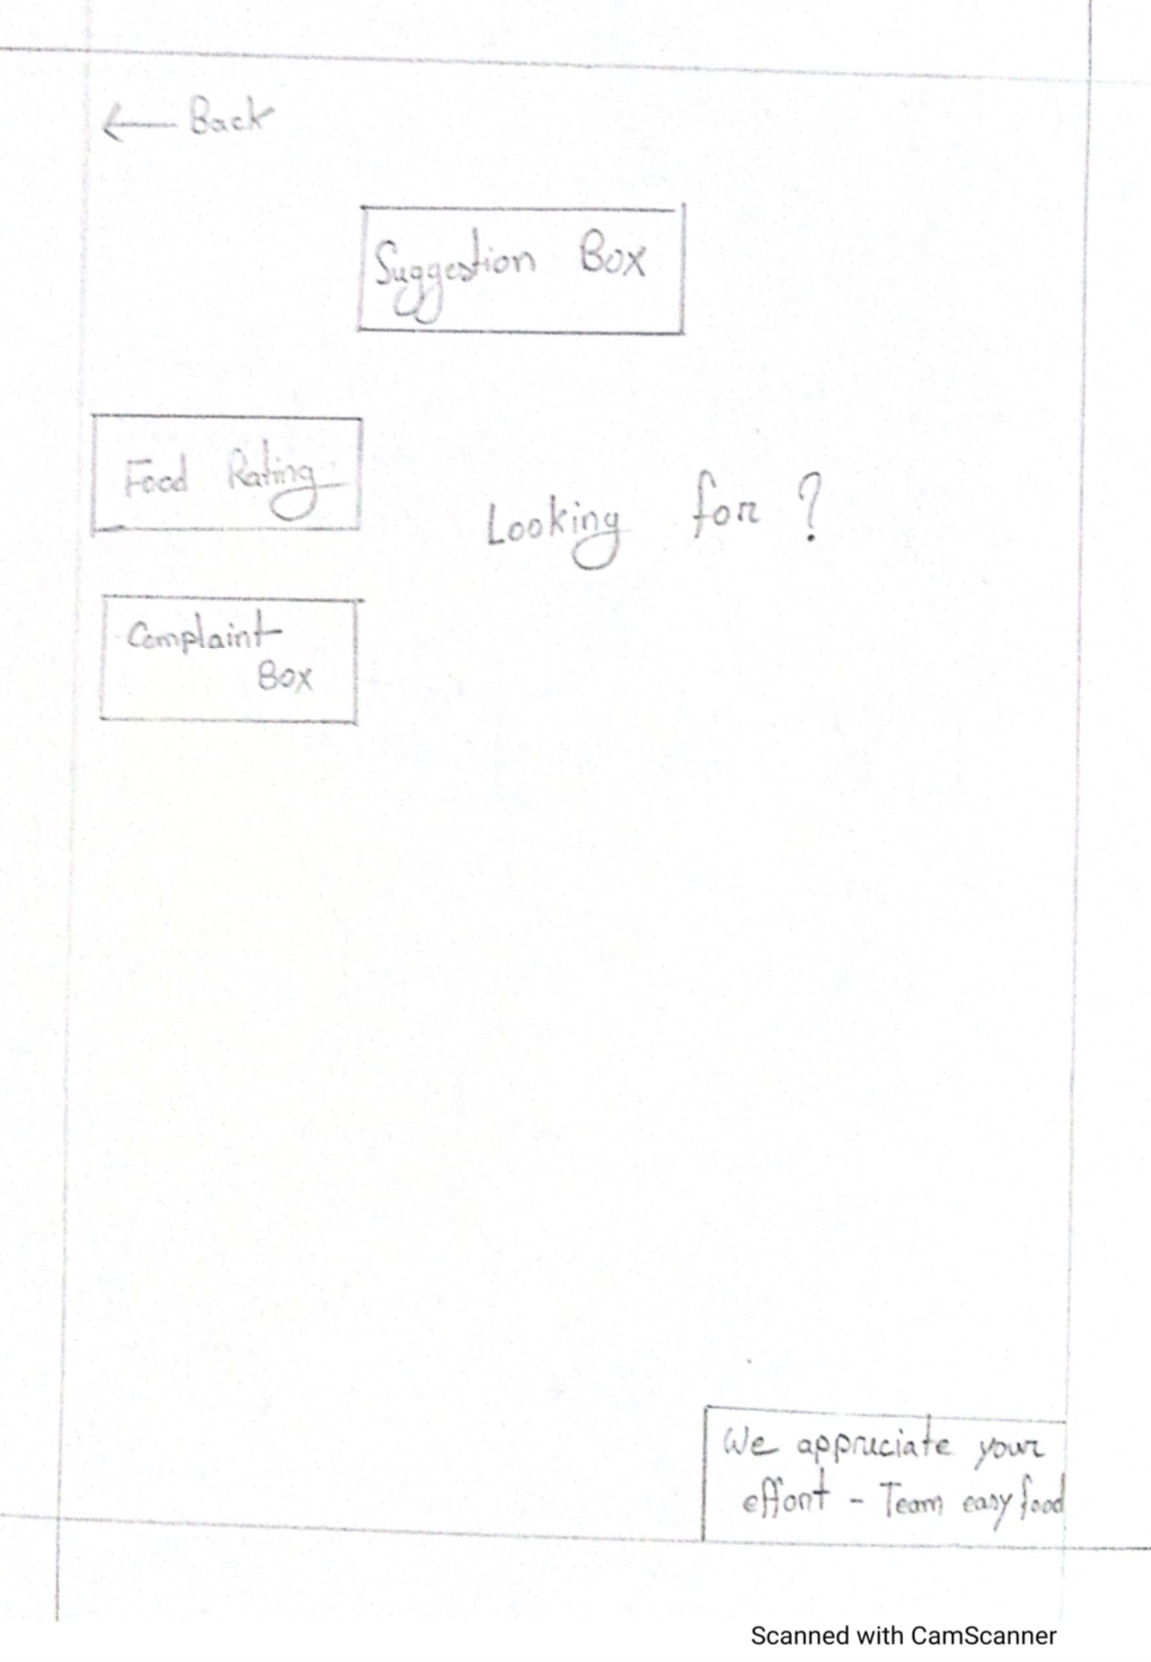 ← Back
Suggestion Box
Food Rating
Looking for ?
Complaint
Box
We appreciate your
effort - Team easy food
Scanned with CamScanner